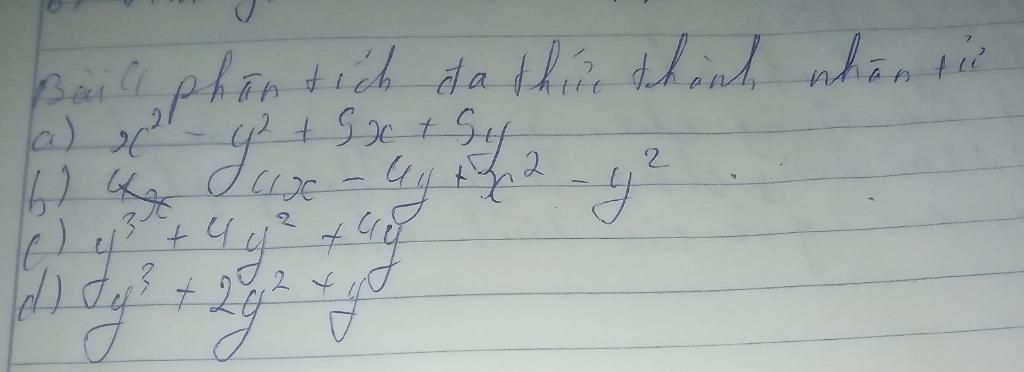 Bài 4 phân tích đa thức thành nhân tử
a) x² - y² + 5x + 5y
b) 4x - 4y + x² - y²
c) y³ + 4y² + 4y
d) y³ + 2y² + y